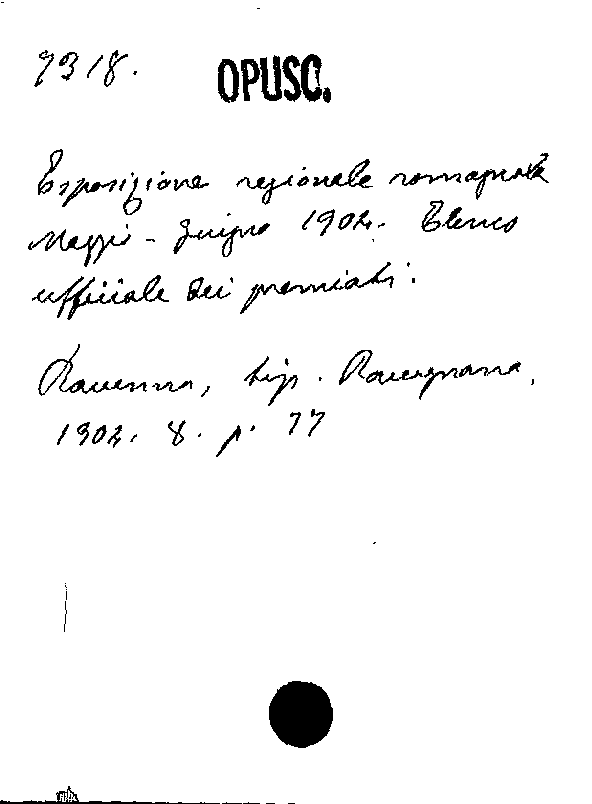 7318. OPUSC.
Esposizione regionale romagnola
Maggio - Giugno 1902. Elenco
ufficiale dei premiati.
Ravenna, tip. Ravegnana,
1902. 8. p. 77